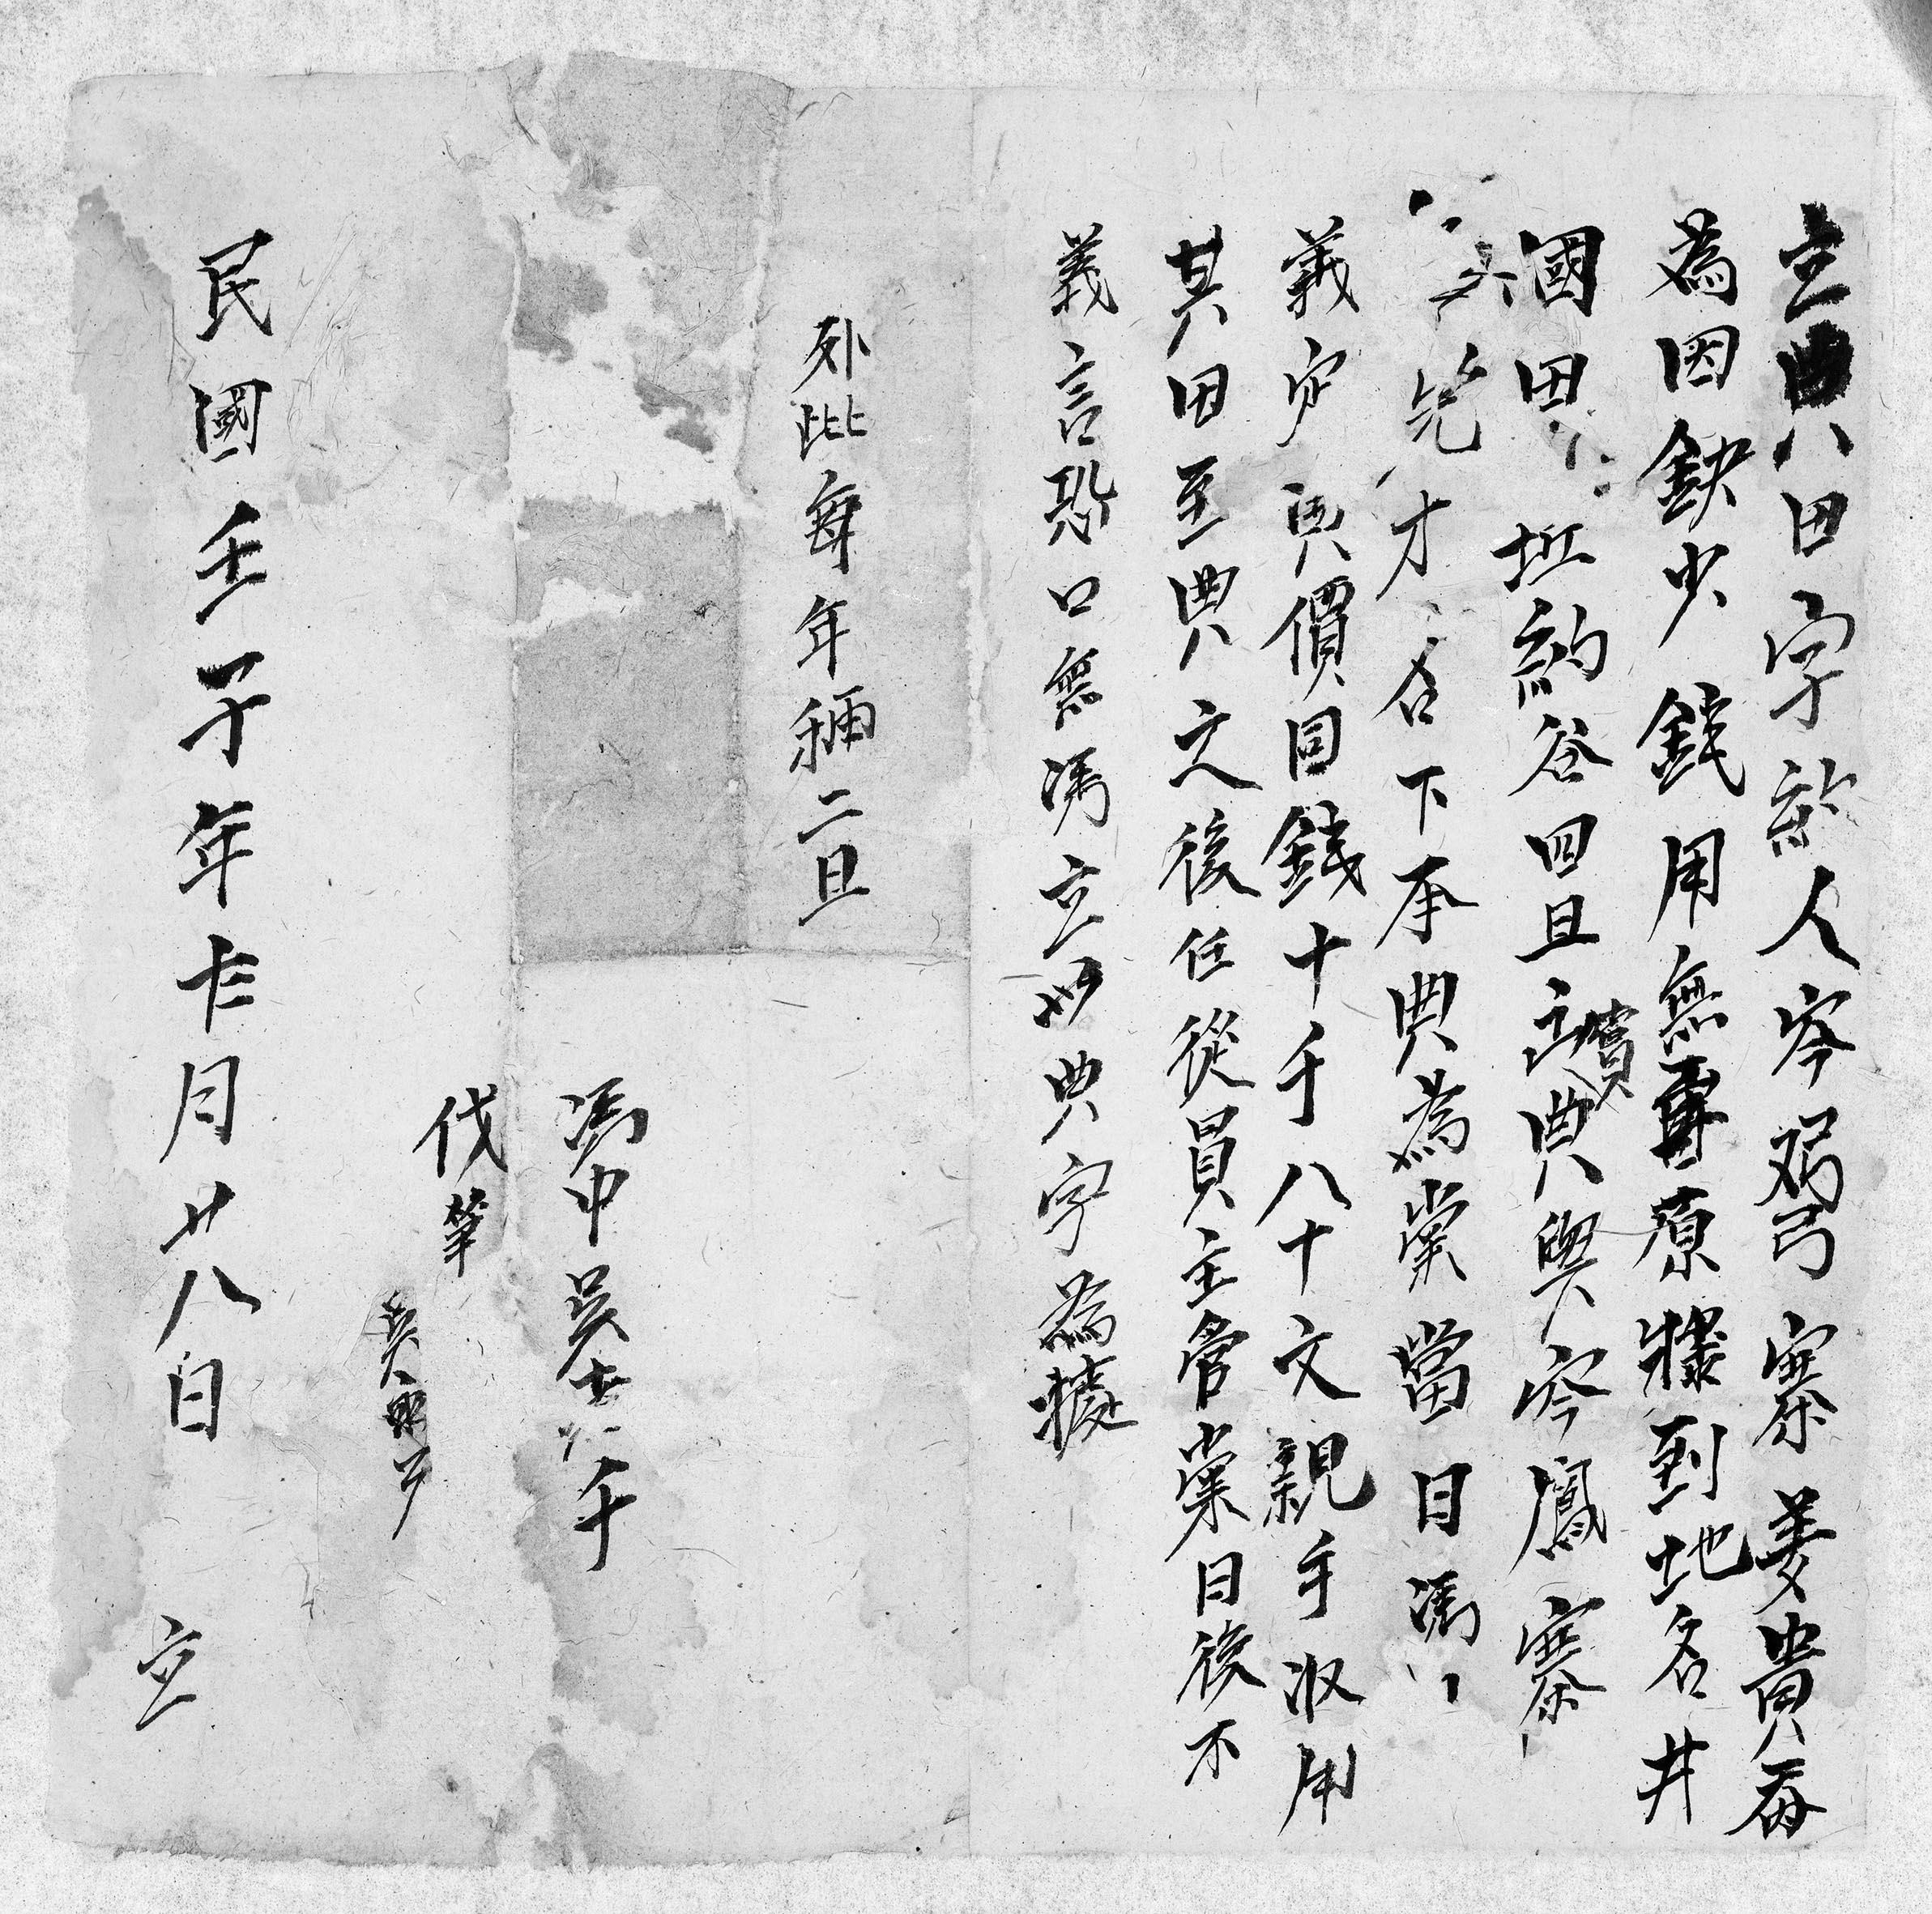 立典田字約人岑努弓寨姜貴每
為因缺少錢用無尋原糕到地名井
國田坵約谷四旦出賣典與岑鳳寨
兄才名下承典為業當日馮
義定典價目錢十千八十文親手收用
其田至典之後任從員主管業日後不
義言恐口無馮立此典字為據
外批每年稱二旦
馮中吳士千
伐筆
民國壬子年十二月廿八日 立